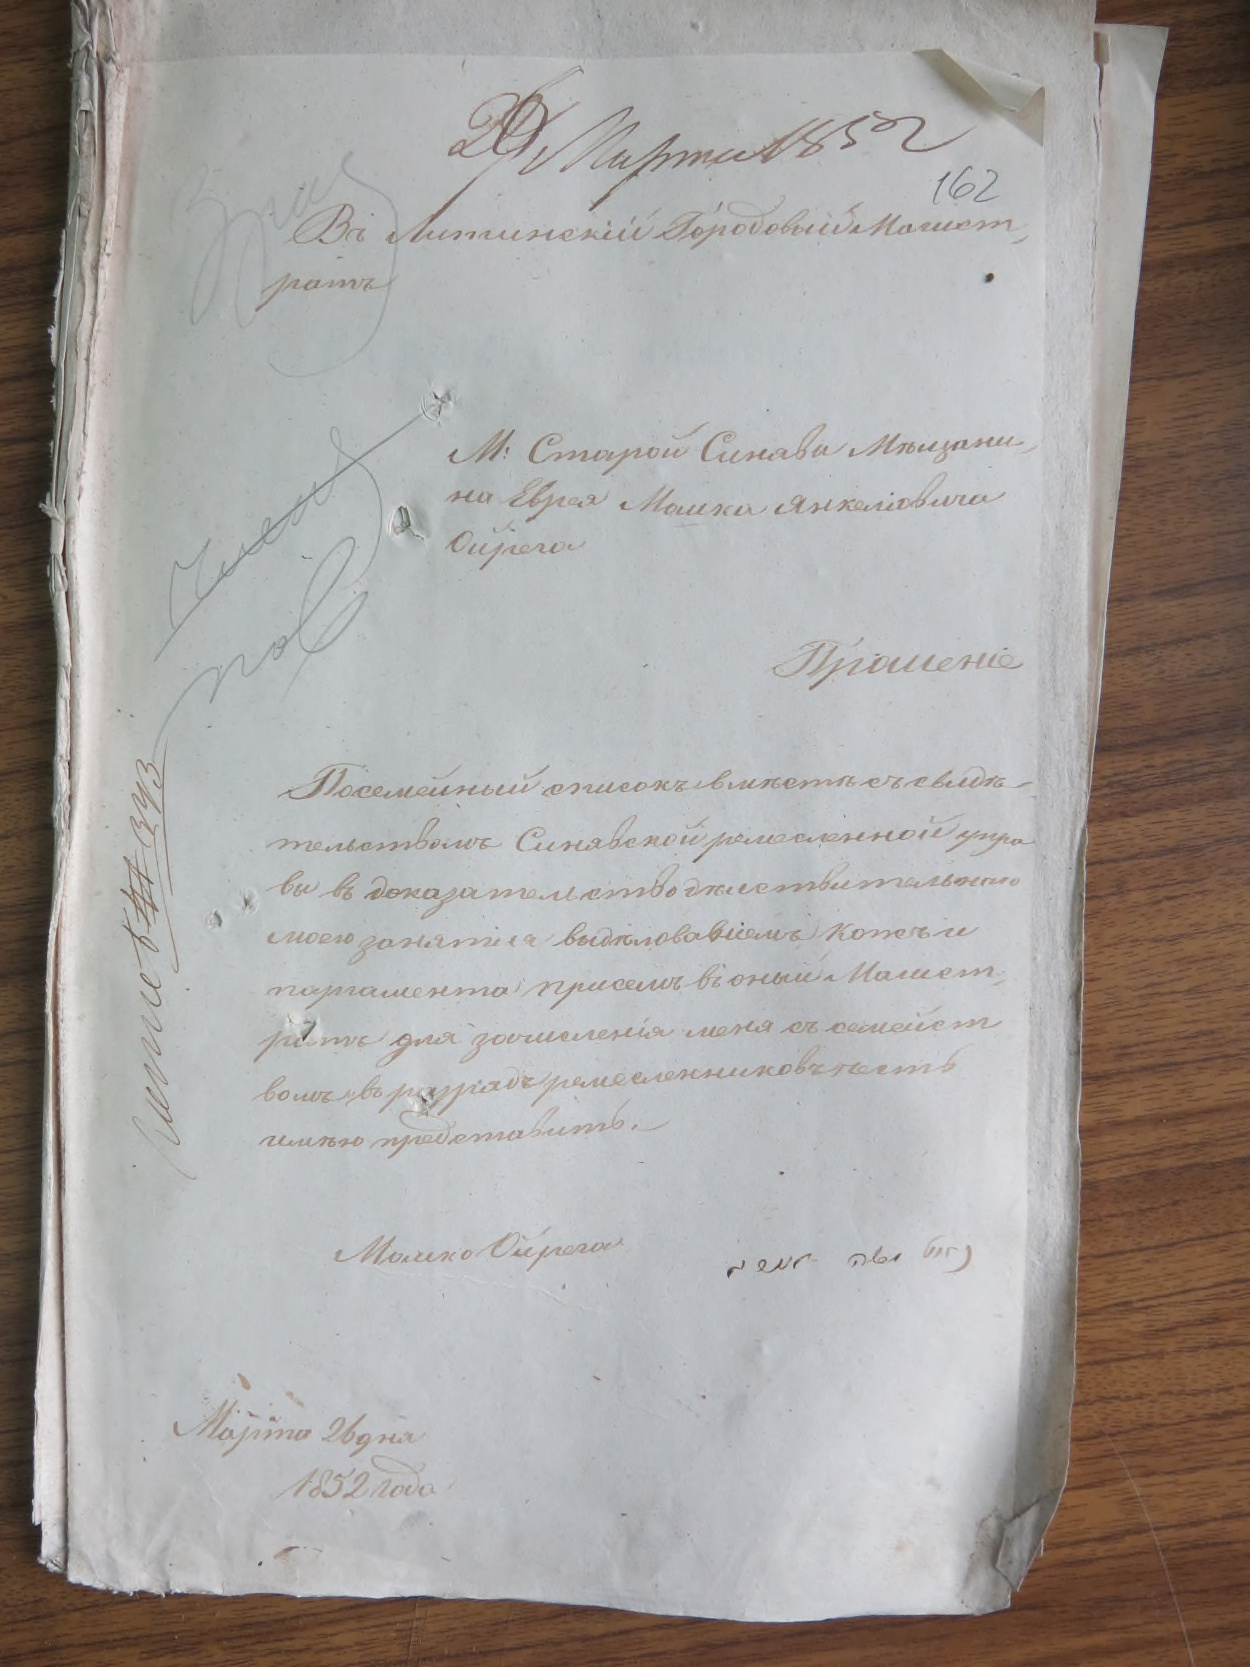 26 Марта 1852
162
Въ Литинскій Городовый Магист,
ратъ
М: Старой Синявы Мѣщани,
на Еврея Мошка Янкеліовича
Ойрега
Прошеніе
Посемейный списокъ вмѣстѣ съ свидѣ-
тельствомъ Синявской ремесленной упра
вы въ доказательство дѣйствительнаго
моего занятія выдѣлованіемъ кожъ и
пергамента при семъ въ оный Магист,
ратъ для зачисленія меня съ семейст
вомъ въ разрядъ ремесленниковъ честь
имѣю представить.
Мошко Ойрега
משה
Марта 26 дня
1852 года